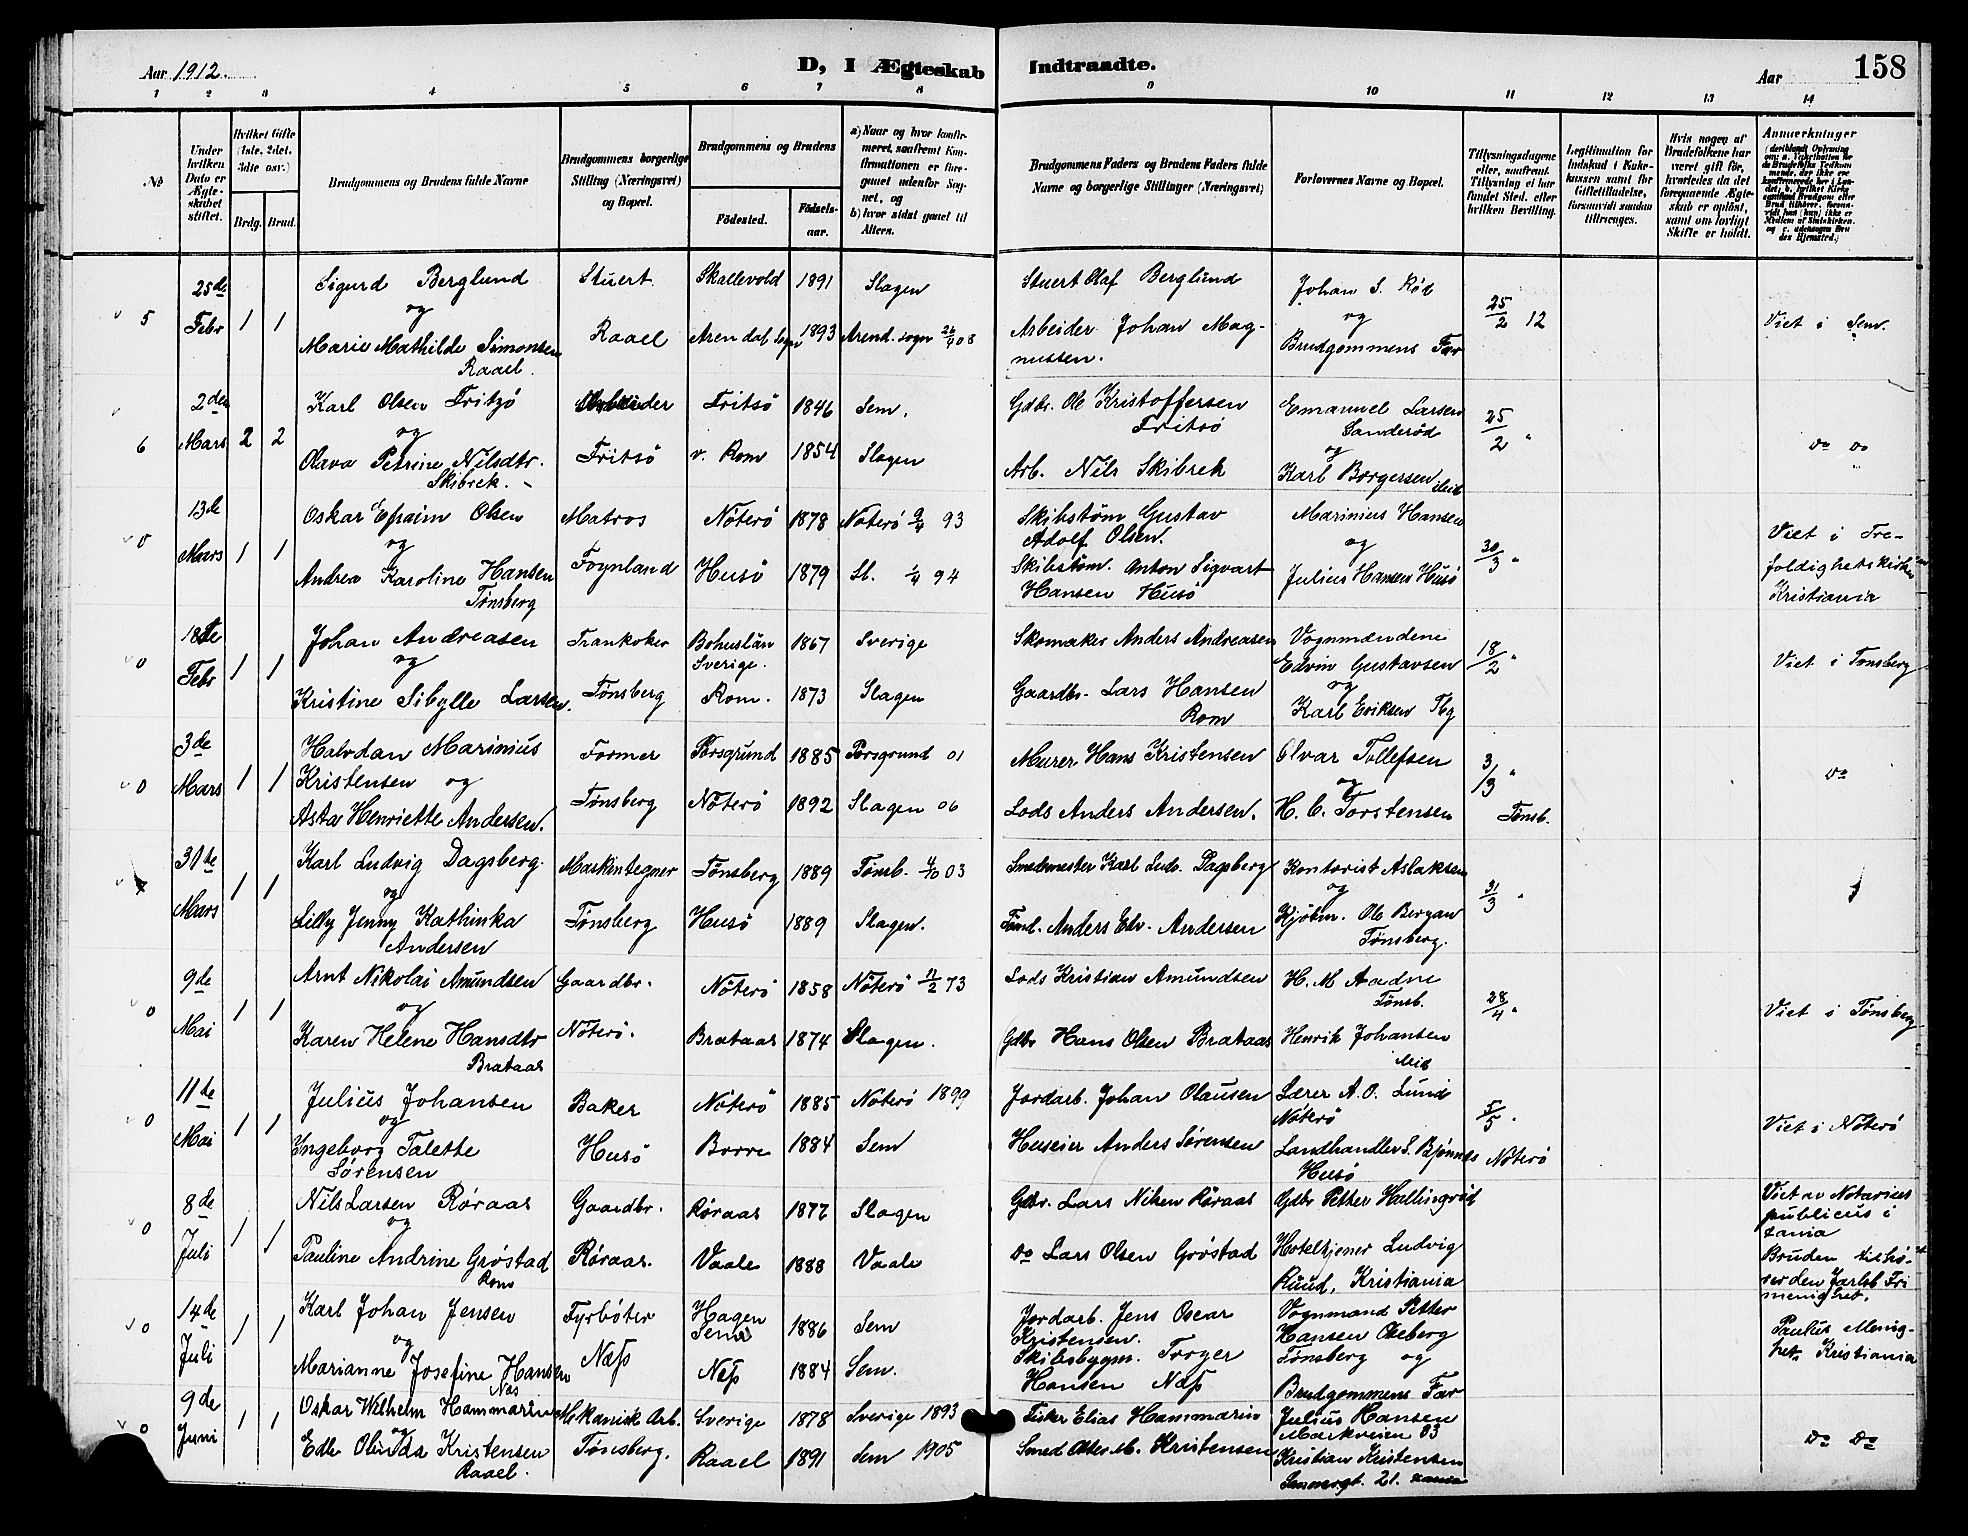 Aar 1912.
D, I Ægteskab Indtraadte.
Aar
158
1 2 3 4 5 6 7 8 9 10 11 12 13 14
No
Under hvilken Dato er Ægteskabet stiftet.
Hvilket Gifte (1ste, 2det, 3dte osv.)
Brdg. Brud.
Brudgommens og Brudens fulde Navne
Brudgommens borgerlige Stilling (Næringsvei) og Bopæl.
Brudgommens og Brudens
Fødested.
Fødselsaar.
a) Naar og hvor konfirmeret, saafremt Konfirmationen er foregaaet udenfor Sognet, og
b) hvor sidst gaaet til Alters.
Brudgommens Faders og Brudens Faders fulde Navne og borgerlige Stillinger (Næringsvei)
Forlovernes Navne og Bopæl.
Tillysningsdagene eller, saafremt Tillysning ei har fundet Sted, efter hvilken Bevilling.
Legitimation for Indskud i Enkekassen samt for Giftetilladelse, forsaavidt saadan tiltrænges.
Hvis nogen af Brudefolkene har været gift før, hvorledes da det foregaaende Ægteskab er opløst, samt om lovligt Skifte er holdt.
Anmærkninger
5 25de Febr 1 1
Sigurd Berglund
og
Marie Mathilde Simonsen
Raael
Stuert
Raael
Skallevold 1891 Slagen
Arendal Sogn 1893 Arend. sogn 26/4 08
Stuert Olaf Berglund
Arbeider Johan Magnussen.
Johan S. Rød
og
Brudgommens Far
25/2 12
Viet i Sem.
6 2den Mars 2 2
Karl Olsen Fritzø
og
Olava Petrine Nilsdtr.
Skibrek.
Arbeider
Fritsö
Fritsö 1846 Sem.
v. Rom 1854 Slagen
Gdbr. Ole Kristoffersen
Fritsö
Arb. Nils Skibrek
Emanuel Larsen
Sanderød
og
Karl Borgersen ibid
25/2 "
do do
0 13de Mars 1 1
Oskar Efraim Olsen
og
Andrea Karoline Hansen
Tønsberg
Matros
Foynland
Nöterö 1878 Nöterö 9/4 93
Husö 1879 Sl. 1/4 94
Skibstöm Gustav
Adolf Olsen.
Skibstöm. Anton Sigvart
Hansen Husö
Marinius Hansen
og
Julius Hansen Husö
30/3 "
Viet i Trefoldighetskirken
Kristiania
0 18de Febr 1 1
Johan Andreasen
og
Kristine Sibylle Larsen.
Trankoker
Tønsberg
Bohuslän
Sverige. 1867 Sverige
Rom. 1873 Slagen
Skomaker Anders Andreasen
Gaardbr. Lars Hansen
Rom
Vognmændene
Edvin Gustavsen
og
Karl Eriksen Tbg
18/2 "
Viet i Tønsberg
0 3de Mars 1 1
Halvdan Marinius
Kristensen og
Asta Henriette Andersen.
Former
Tønsberg
Porsgrund 1885 Porsgrund 01
Nöterö 1892 Slagen 06
Murer Hans Kristensen
Lods Anders Andersen.
Olvar Tollefsen
og
H. C. Torstensen
3/3 "
Tønsb.
do
31de Mars 1 1
Karl Ludvig Dagsberg.
og
Lilly Jenny Kathinka
Andersen
Maskintegner
Tønsberg
Tønsberg 1889 Tønsb. 4/10 03
Husö 1889 Slagen.
Smedmester Karl Ludv. Dagsberg
Anders Edv. Andersen
Kontorist Aslaksen
og
Kjöbm. Ole Bergan
Tønsberg.
31/3 "
0 9de Mai 1 1
Arnt Nikolai Amundsen
og
Karen Helene Hansdtr
Brataas
Gaardbr.
Nöterö.
Nöterö 1858 Nöterö 11/2 73
Brataas 1874 Slagen.
Lods Kristian Amundsen
Gdbr Hans Olsen Brataas
H. M Aadne
Tønsb.
Henrik Johansen
ibid
28/4 "
Viet i Tønsberg
0 11de Mai 1 1
Julius Johansen
og
Ingeborg Talette
Sørensen
Baker
Husö
Nöterö 1885 Nöterö 1899
Borre 1884 Sem
Jordarb. Johan Olausen
Huseier Anders Sørensen
Lærer A. O. Lund
Nöterö
Landhandler S. Bjønnes
Husö
5/5 "
Nöterö
Viet i Nöterö
0 8de Juli 1 1
Nils Larsen Røraas
og
Pauline Andrine Grøstad
Rom
Gaardbr.
Røraas.
Røraas 1877 Slagen
Vaale 1888 Vaale
Gdbr. Lars Nilsen Røraas
do Lars Olsen Grøstad
Gdbr Petter Hallingrød
Hoteltjener Ludvig
Ruud, Kristiania
Viet av Notarius
publicus i
Xania
Bruden tilhører den Jarlsb. Frimenighet.
0 14de Juli 1 1
Karl Johan Jensen
og
Marianne Josefine Hansen
Næs
Fyrbøter
Næss
Hagen
Sem 1886 Sem
Næss 1884 Sem.
Jordarb. Jens Oscar
Kristensen.
Skibsbygm. Torger
Hansen Næss
Vognmand Petter
Hansen Olseberg
Tønsberg og
Brudgommens Far
Paulus Menighet, Kristiania
0 9de Juni 1 1
Oskar Wilhelm Hammarin
og
Edle Olinda Kristensen
Raael.
Mekanisk Arb.
Tønsberg.
Sverige 1878 Sverige 1893
Raael 1891 Sem 1905
Fisker Elias Hammarin
Smed M. Kristensen
Julius Hansen
Markveien 33
Kristian Kristensen
21. Xania
Do Do